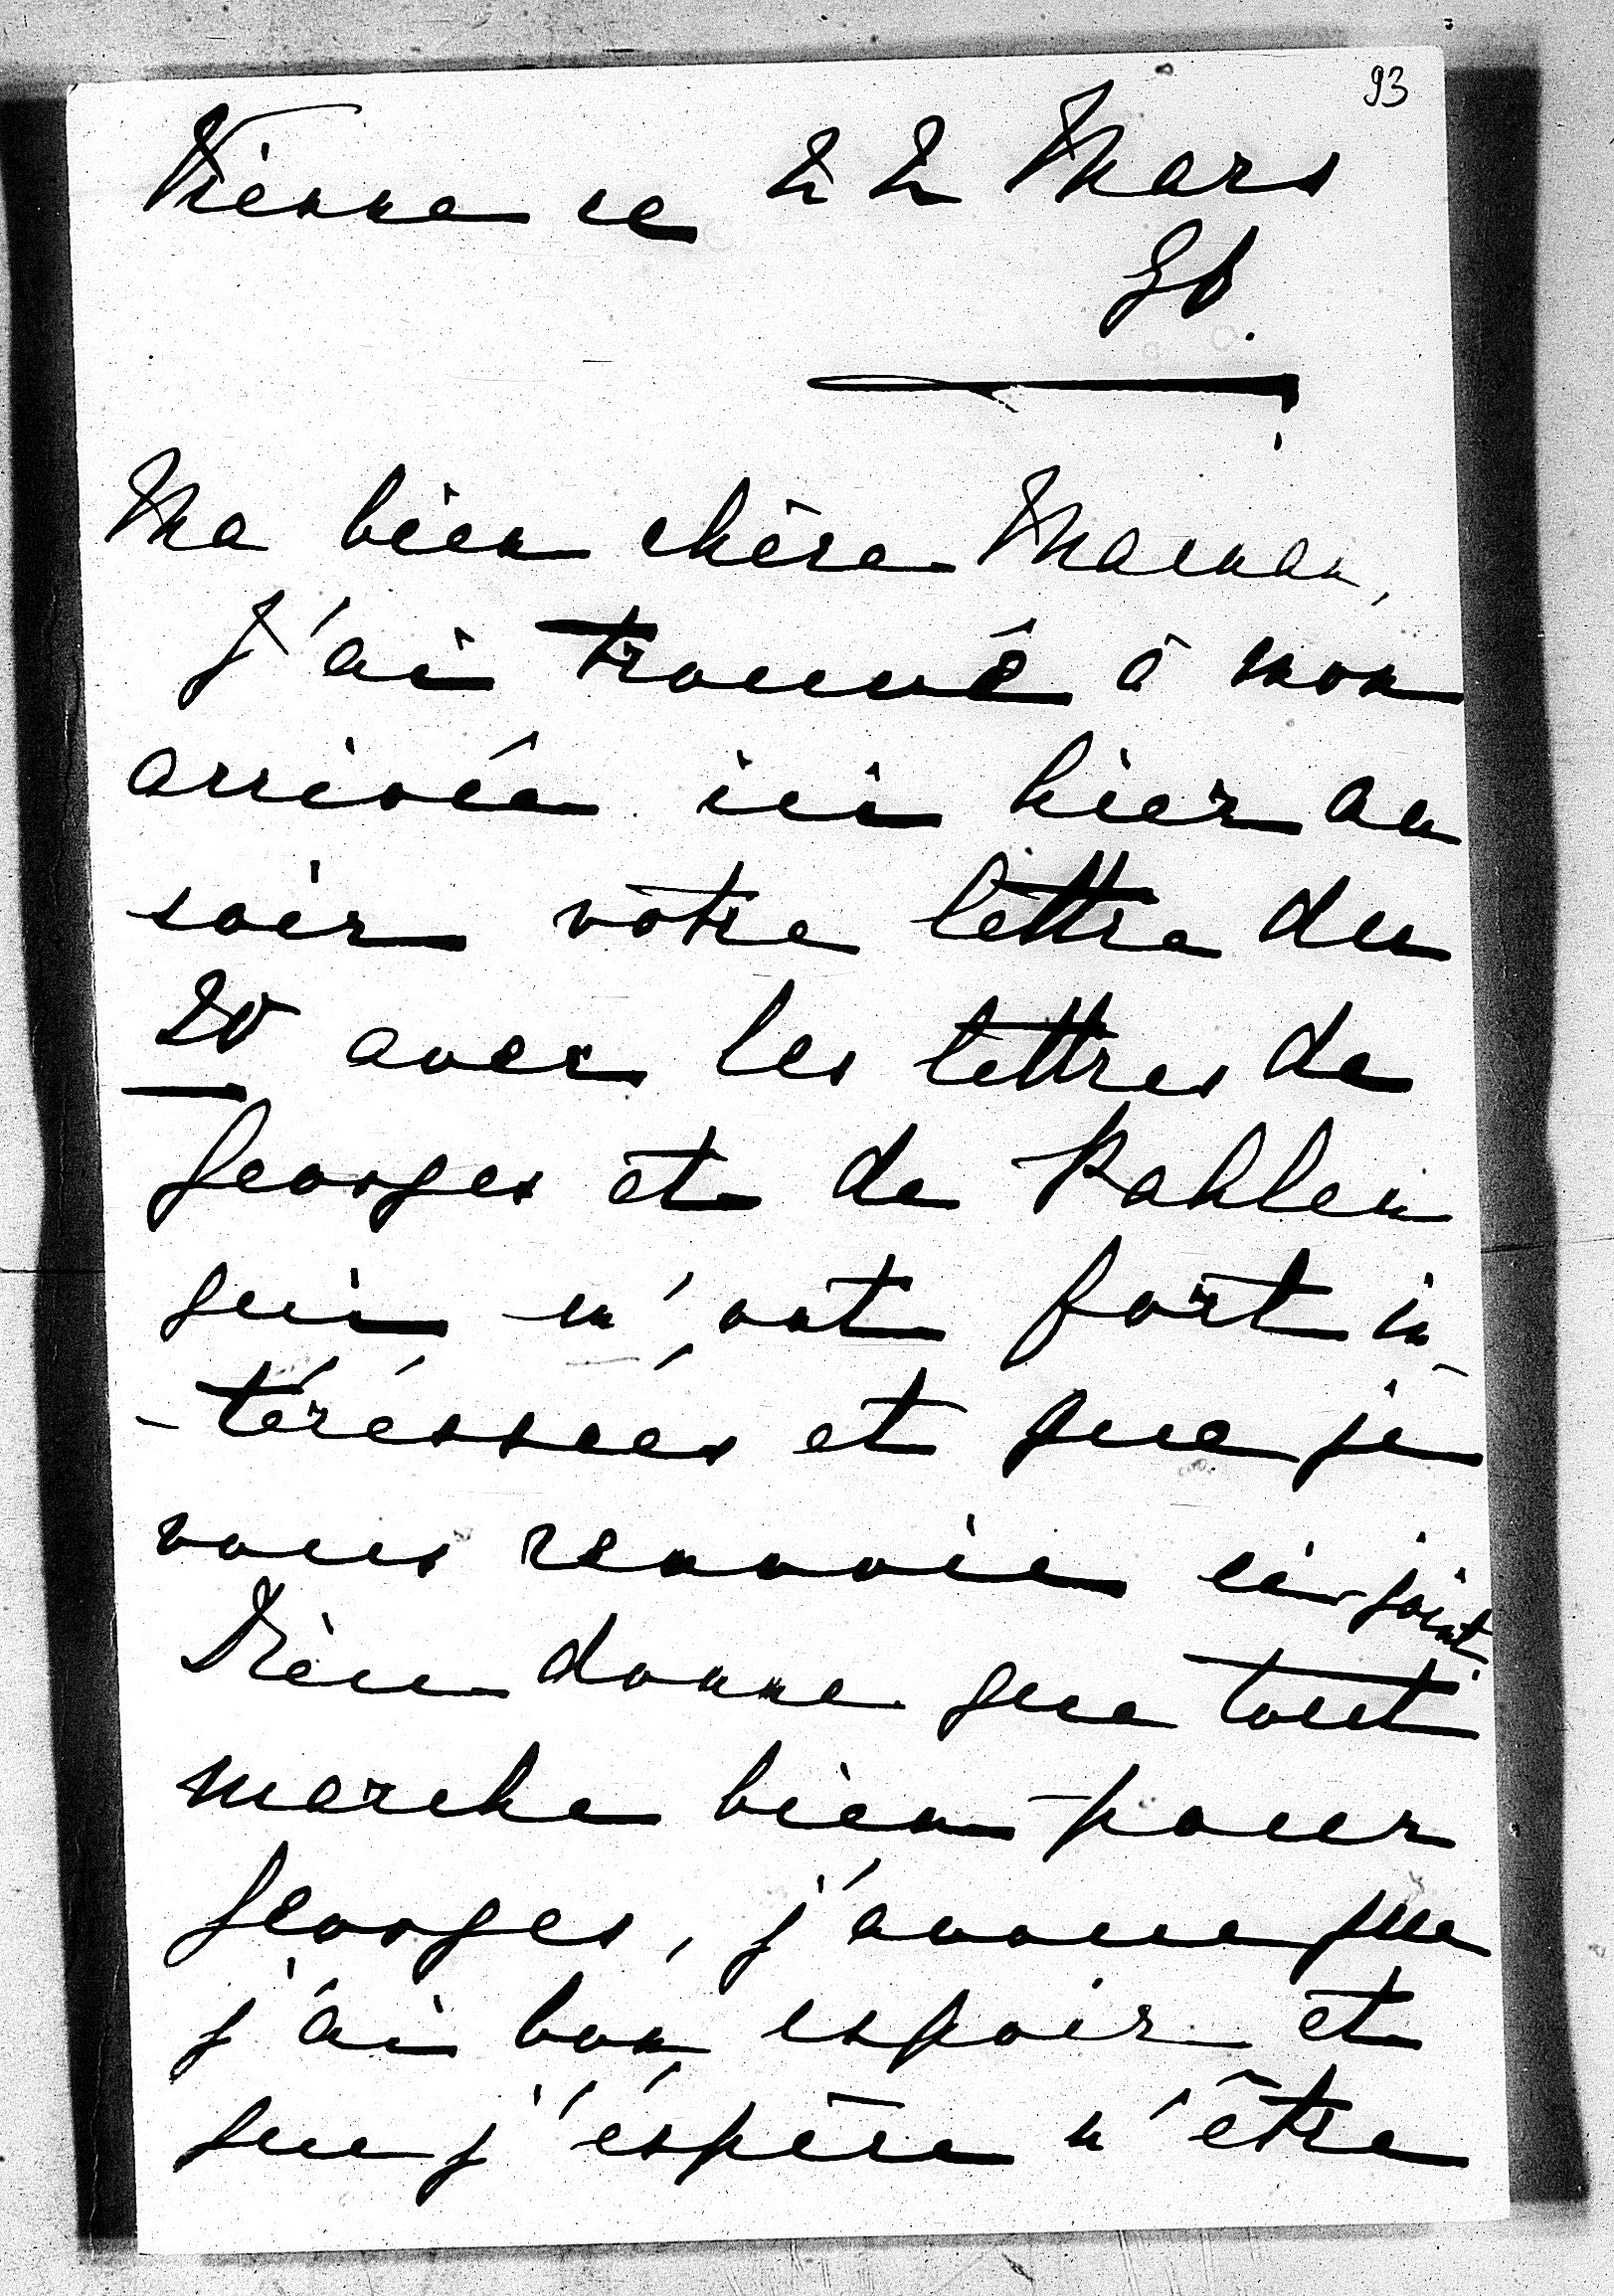 93
Vienne ce 22 Mars
90.
Ma bien chère Maman,
J'ai trouvé à mon
arrivée ici hier au
soir votre lettre du
20 avec les lettres de
Georges et de Pahlen
qui m'ont fort in-
-téréssées et que je
vous renvoie ci-joint
Dieu donne que tout
marche bien pour
Georges, j'avoue que
j'ai bon espoir et
que j'éspère n'être